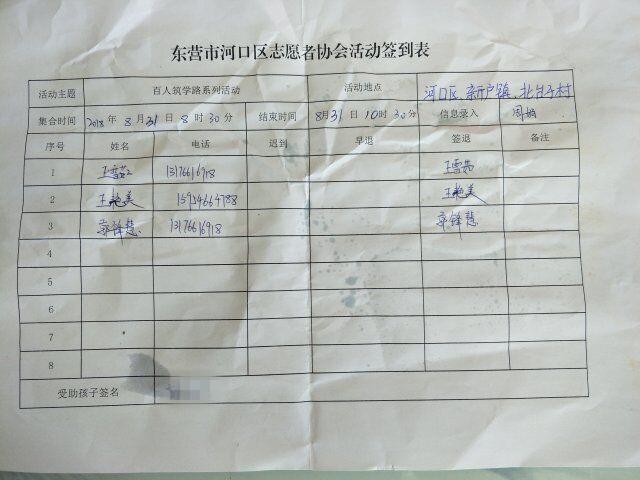 东营市河口区志愿者协会活动签到表
活动主题 百人筑学路系列活动 活动地点 河口区、新户镇、北 村
集合时间 2018年 8月31日 8时30分 结束时间 8月31日10时30分 信息录入 周娟
序号 姓名 电话 迟到 早退 签退 备注
1 王雪茹 13176616918 王雪茹
2 王艳美 15954664788 王艳美
3 13176616918
4
5
6
7
8
受助孩子签名